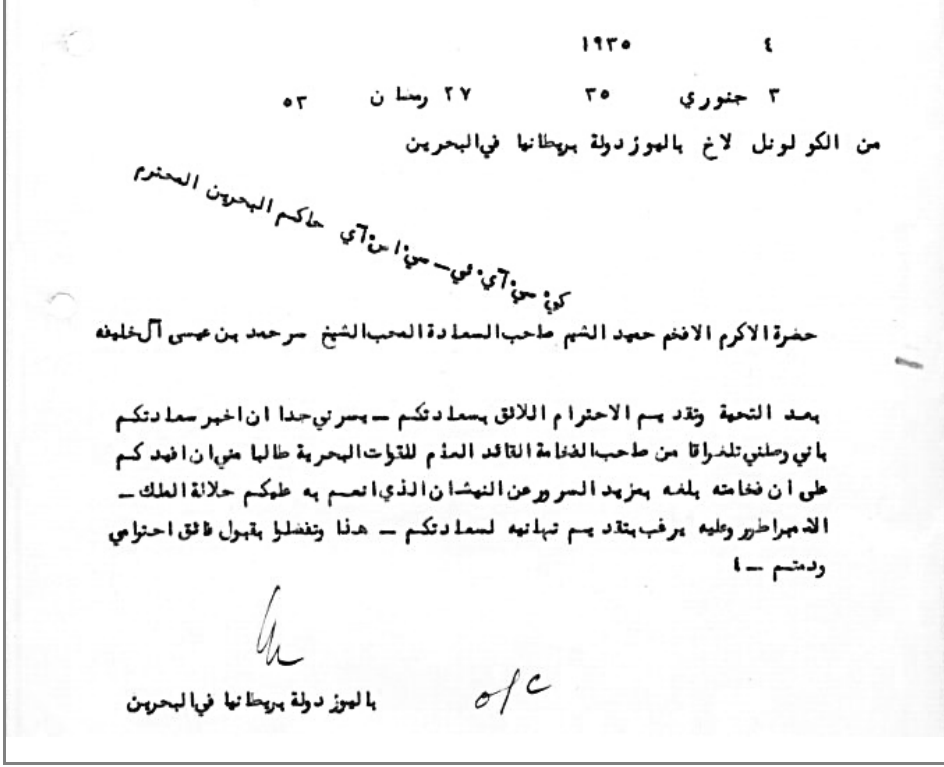 ٤ ١٩٣٥
٣ جنوري ٣٥ ٢٧ رمضان ٥٣
من الكولونل لاخ باليوز دولة بريطانيا في البحرين
حضرة الاكرم الافخم حميد الشيم صاحب السعادة المحب الشيخ سر حمد بن عيسى آل خليفه
كي٠ سي٠ آي٠ ئي – سي٠ اس٠ آي حاكم البحرين المحترم
بعد التحية وتقديم الاحترام اللائق بسعادتكم – يسرني جدا ان اخبر سعادتكم
باني وصلني تلغرافا من صاحب الفخامة القائد العام للقوات البحرية طالبا مني ان افيدكم
على ان فخامته بلغه بمزيد السرور عن النيشان الذي انعم به عليكم جلالة الملك –
الامبراطور وعليه يرغب بتقديم تهانيه لسعادتكم – هذا وتفضلوا بقبول فائق احترامي
ودمتم – ٤
باليوز دولة بريطانيا في البحرين
o/c